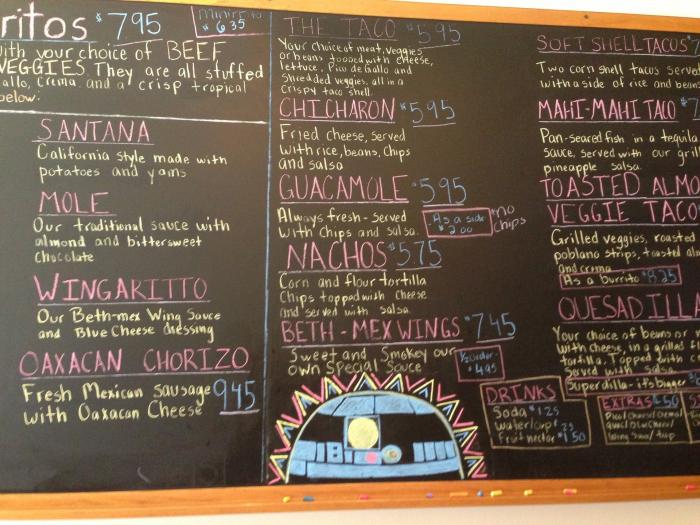 ritos $7.95
miniRito
$6.35
with your choice of BEEF
VEGGIES. They are all stuffed
allo, Crema, and a crisp tropical
below:
SANTANA
California style made with
potatoes and yams
MOLE
Our traditional sauce with
almond and bittersweet
chocolate
WINGARITTO
Our Beth-mex Wing Sauce
and Blue Cheese dressing
OAXACAN CHORIZO
Fresh Mexican Sausage
with Oaxacan Cheese
9.45
THE TACO $5.95
Your choice of meat, veggies
or beans topped with cheese,
lettuce, Pico de Gallo and
Shredded veggies, all in a
crispy taco shell.
CHICHARON $5.95
Fried cheese, served
with rice, beans, chips
and salsa
GUACAMOLE $5.95
Always fresh - served
with chips and salsa.
As a side
$2.00
*no
chips
NACHOS $5.75
Corn and flour tortilla
Chips topped with cheese
and served with salsa.
BETH-MEX WINGS $7.45
Sweet and Smokey our
own Special Sauce
1/2 order
$4.95
SOFT SHELL TACOS
Two corn shell tacos served
with a side of rice and beans
MAHI-MAHI TACO
Pan-seared fish in a tequila
sauce, served with our grill
pineapple salsa.
TOASTED ALMO
VEGGIE TACO
Grilled veggies, roasted
poblano strips, toasted alm
and crema
As a burrito $8.25
QUESADILLA
Your choice of beans or
with cheese, in a grilled fl
tortilla. Topped with
Served with salsa.
Superdilla - it's bigger
DRINKS
Soda $1.25
Water/cup .25
Fruit nectar $1.50
EXTRAS $.50
Pico/Cheese/Crema/
Guac/Blue Cheese/
Wing Sauce/